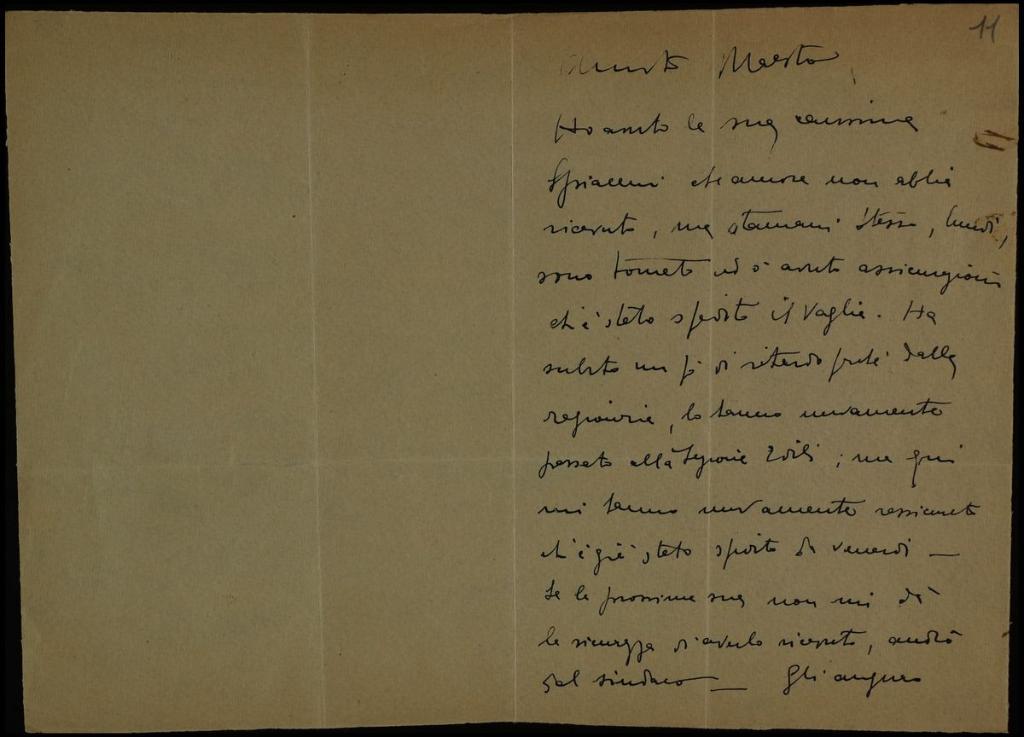 11
Maestro,
Ho avuto la sua carissima
Spiacemi che ancora non abbia
ricevuto, ma stamani stesso, lunedì,
sono tornato ed ò avuto assicurazioni
ch'è stato spedito il vaglia. Ha
subito un pò di ritardo perché dalla
ragioneria, lo hanno nuovamente
passato alla Sezione Edili; ma qui
mi hanno nuovamente rassicurato
ch'è già stato spedito da venerdì —
Se la prossima sua non mi dà
la sicurezza di averlo ricevuto, andrò
dal sindaco — Gli auguro